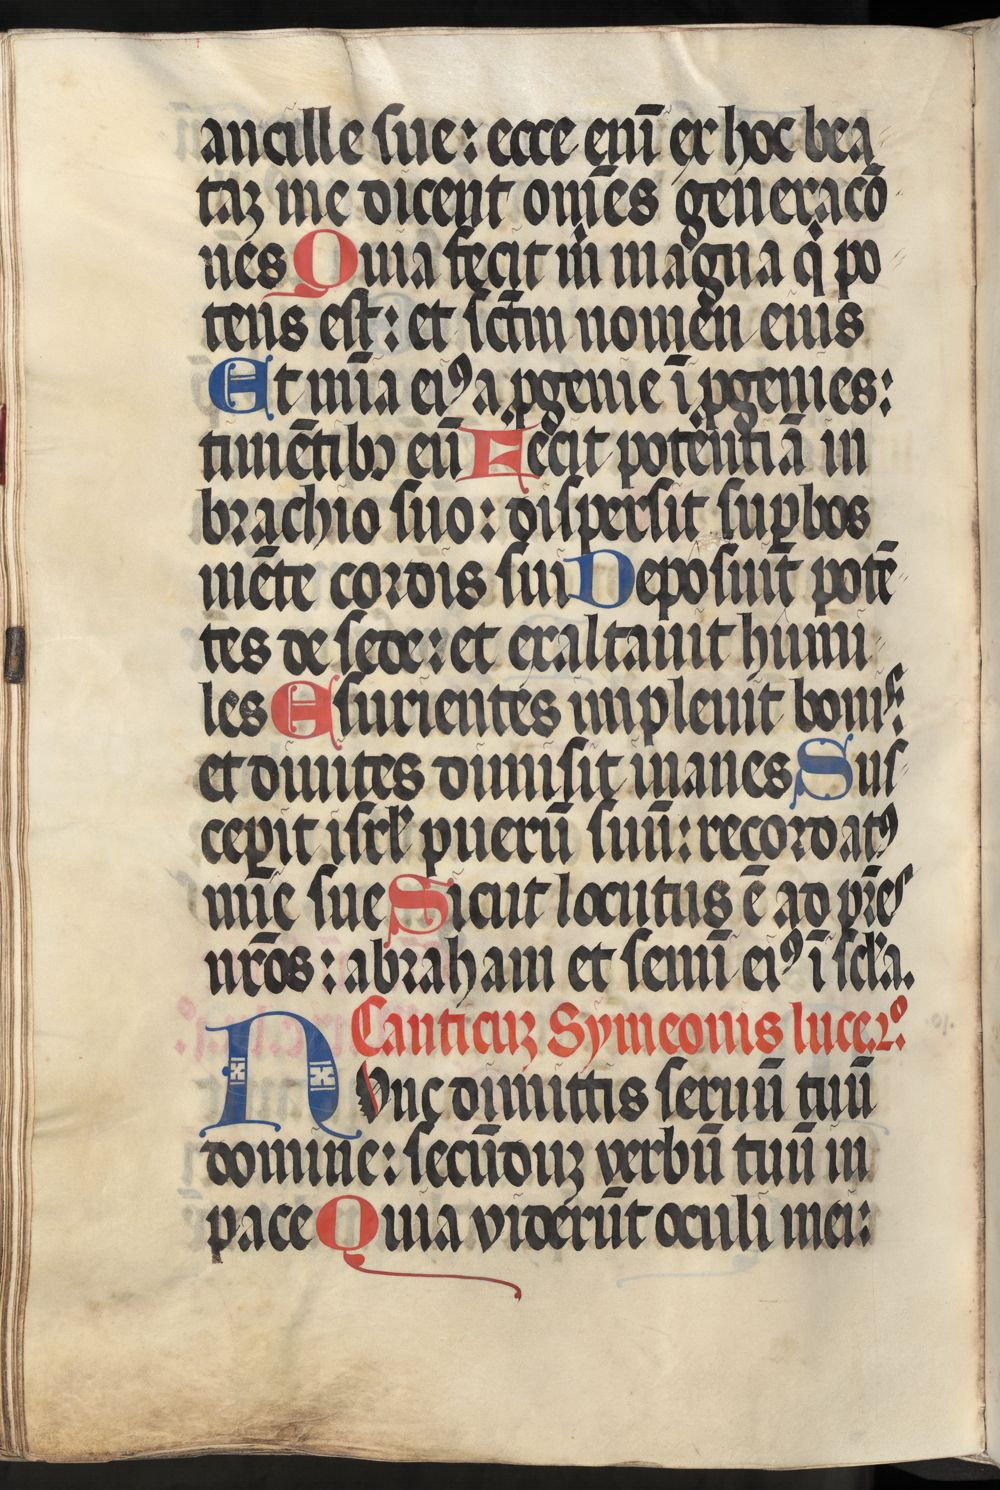 ancille sue: ecce enī ex hoc bea
taꝫ me dicent om̄es generacō
nes Quia fecit m̄ magna qͥ po
tens est: et sc̄tm nomen eius
Et mīa eiꝰ a ꝓgenie ī ꝓgenies:
timētibꝫ eū Fecit potentiā in
brachio suo: dispersit suꝑbos
mēte cordis sui Deposuit potē
tes de sede: et exaltauit humi
les Esurientes impleuit bonis:
et diuites dimisit inanes Sus
cepit isrl̄ puerū suū: recordatꝰ
mīe sue Sicut locutus ē ad pr̄es
nr̄os: abraham et semī eiꝰ ī scl̄a.
Canticuꝫ Symeonis luce.2º
Nunc dimittis seruū tuū
domine: secūduꝫ verbū tuū in
pace Quia viderūt oculi mei: